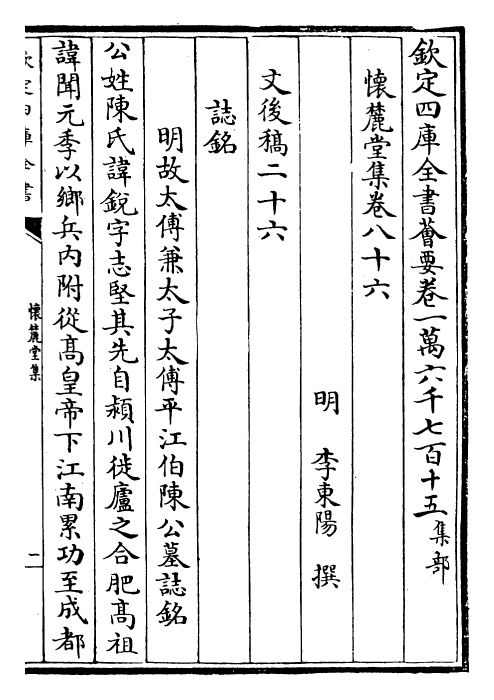 欽定四庫全書薈要卷一萬六千七百十五集部
懷麓堂集卷八十六
明 李東陽 撰
文後稿二十六
誌銘
明故太傅兼太子太傅平江伯陳公墓誌銘
公姓陳氏諱銳字志堅其先自潁川徙廬之合肥髙祖
諱聞元季以鄉兵内附從髙皇帝下江南累功至成都
欽定四庫全書
懷麓堂集